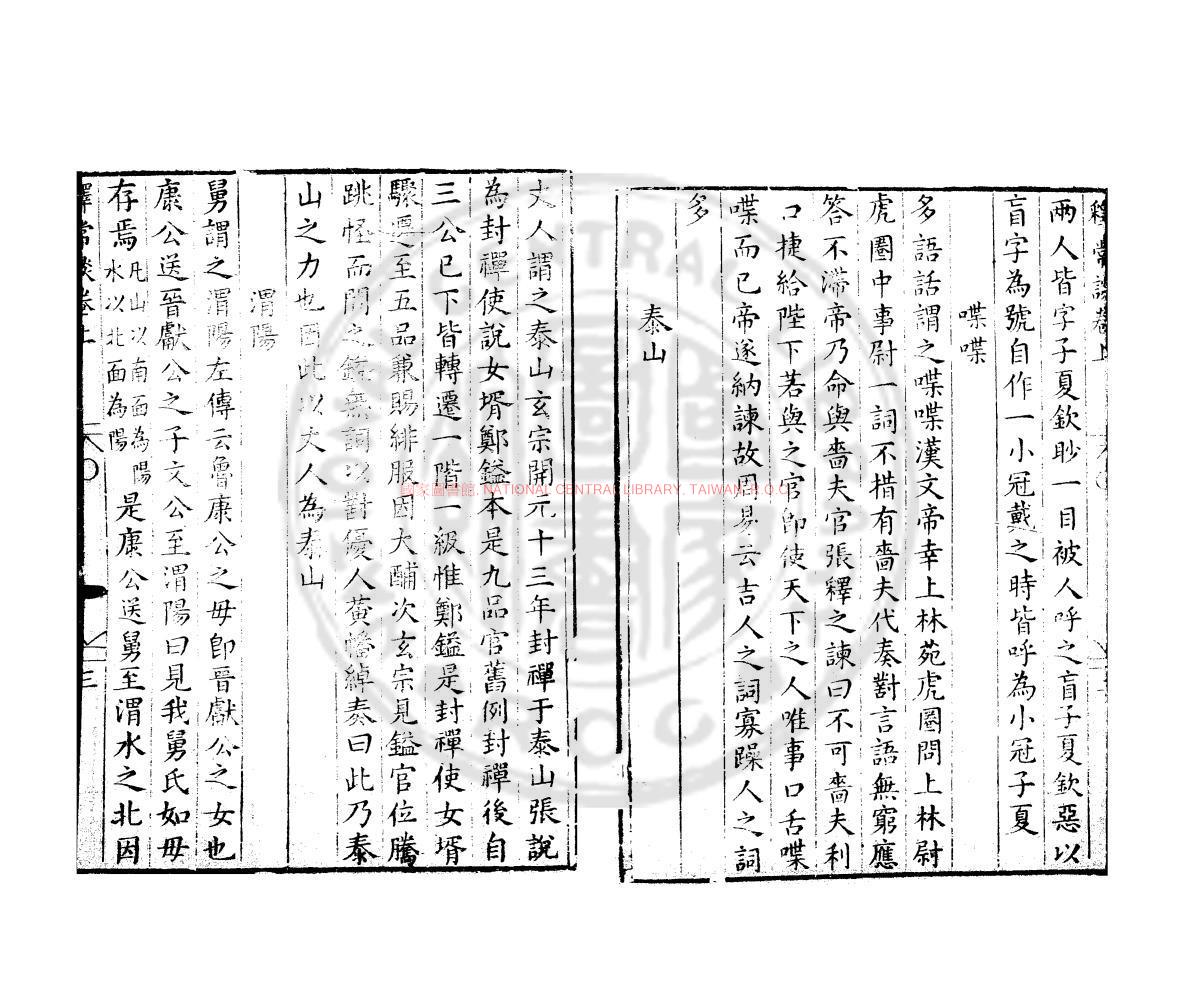 釋常談卷上
兩人皆字子夏欽眇一目被人呼之盲子夏欽惡以
盲字為號自作一小冠戴之時皆呼為小冠子夏
喋喋
多語話謂之喋喋漢文帝幸上林苑虎圈問上林尉
虎圈中事尉一詞不措有嗇夫代奏對言語無窮應
答不滯帝乃命與嗇夫官張釋之諫曰不可嗇夫利
口捷給陛下若與之官即使天下之人唯事口舌喋
喋而已帝遂納諫故周易云吉人之詞寡躁人之詞
多
泰山
丈人謂之泰山玄宗開元十三年封禪于泰山張說
為封禪使說女壻鄭鎰本是九品官舊例封禪後自
三公已下皆轉遷一階一級惟鄭鎰是封禪使女壻
驟遷至五品兼賜緋服因大酺次玄宗見鎰官位騰
跳怪而問之鎰無詞以對優人黃幡綽奏曰此乃泰
山之力也因此以丈人為泰山
渭陽
舅謂之渭陽左傳云魯康公之毋即晉獻公之女也
康公送晉獻公之子文公至渭陽曰見我舅氏如毋
存焉凡山以南面為陽水以北面為陽是康公送舅至渭水之北因
釋常談卷上
三
國家圖書館, NATIONAL CENTRAL LIBRARY, TAIWAN, R.O.C.